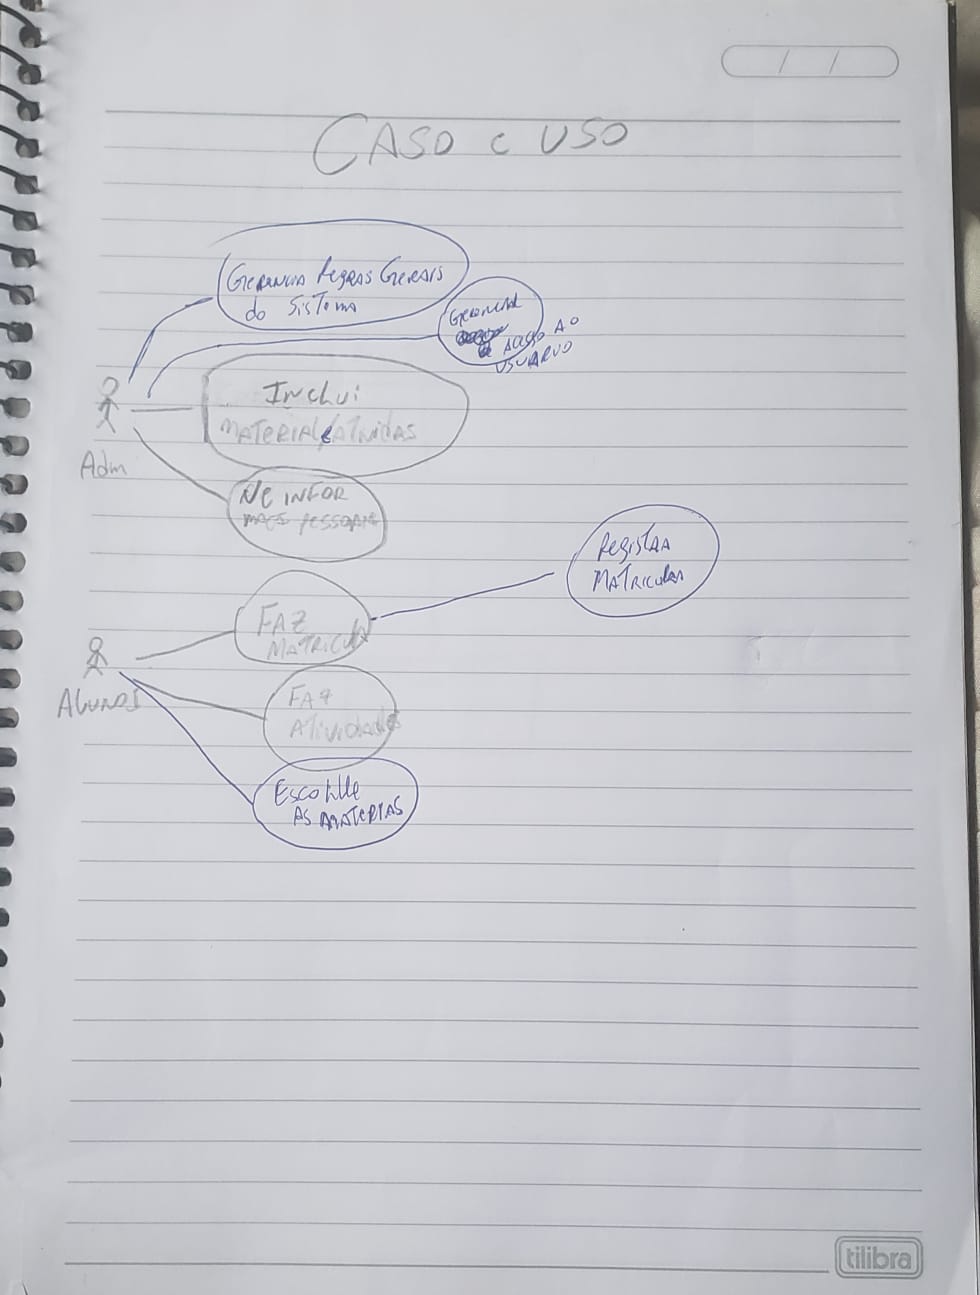 CASO c USO
Gerencia Regras Gerais
do Sistema
Gerencia
Acesso AO
USUARIO
Inclui
MATERIAL
Adm
INFOR
PESSOAIS
Registra
MATRICULA
FAZ
MATRICULA
Alunos
FAZ
Atividades
Escolhe
AS MATERIAS
tilibra